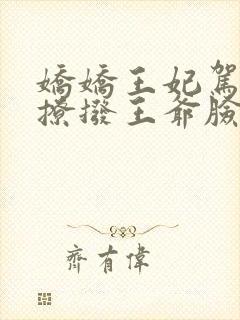 嬌嬌王妃駕
撩撥王爺臉
齊有偉